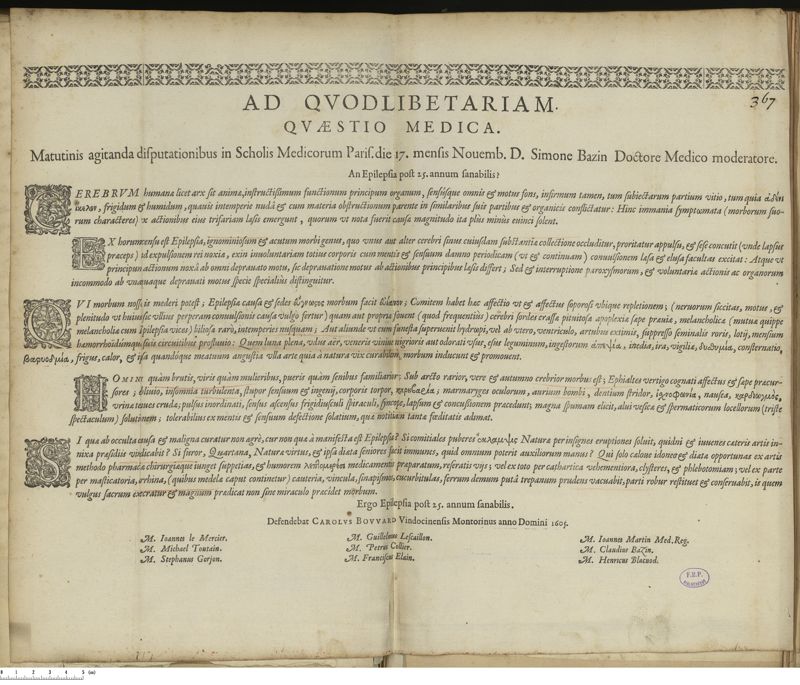 367
AD QVODLIBETARIAM.
QVÆSTIO MEDICA.
Matutinis agitanda disputationibus in Scholis Medicorum Paris. die 17. mensis Nouemb. D. Simone Bazin Doctore Medico moderatore.
An Epilepsia post 25. annum sanabilis?
CEREBRVM humana licet arx sit animæ, instructissimum functionum principum organum, sensusque omnis & motus fons, infirmum tamen, tum subiectarum partium vitio, tum quia
frigidum & humidum, quauis intemperie nudâ & cum materia obstructionum parente in similaribus suis partibus & organicis conflictatur: Hinc immania symptomata (morborum suo-
rum characteres) x actionibus eius trifariam læsis emergunt, quorum vt nota fuerit causa magnitudo ita plùs minùs euinci solent.
EX horum censu est Epilepsia, ignominiosum & acutum morbi genus, quo vnus aut alter cerebri sinus cuiusdam substantiæ collectione occluditur, proritatur appulsu, & sese concutit (vnde lapsus
præceps) id expulsionem rei noxiæ, exin inuoluntariam totius corporis cum mentis & sensuum damno periodicam (vt & continuam) conuulsionem læsa & elusa facultas excitat: Atque vt
principum actionum noxâ ab omni deprauato motu, sic deprauatione motus ab actionibus principibus læsis differt; Sed & interruptione paroxysmorum, & voluntaria actionis ac organorum
incommodo ab vnaquaque deprauati motus specie specialiùs distinguitur.
QVI morbum nosse is mederi potest; Epilepsia causa & sedes morbum facit Comitem habet hæc affectio vt & affectus soporosi vbique repletionem; (neruorum siccitas, motus, &
plenitudo vt huiusce vllius perperam conuulsionis causa vulgò fertur) quam aut propria fouent (quod frequentius) cerebri sordes crassa pituitosa apoplexiæ sæpe prauia, melancholica (mutua quippe
melancholia cum Epilepsia vices) biliosa rarò, intemperies nusquam; Aut aliunde vt cum funesta superuenit hydropi, vel ab vtero, ventriculo, artubus extimis, suppresso seminalis roris, lotij, mensium
hæmorrhoidúmque suis circuitibus profluuio: Quem luna plena, vdus aër, veneris vinique nigrioris aut odorati vsus, esus leguminum, ingestorum ἀπεψία, inedia, ira, vigilia, consternatio,
frigus, calor, & ipsa quandóque meatuum angustia vlla arte quia à natura vix curabilem, morbum inducunt & promouent.
HOMINI quàm brutis, viris quàm mulieribus, pueris quàm senibus familiaris: Sub arcto rarior, vere & autumno crebrior morbus est; Ephialtes vertigo cognati affectus & sæpe præcur-
sores; obliuio, insomnia turbulenta, stupor sensuum & ingenij, corporis torpor, marmaryges oculorum, aurium bombi, dentium stridor, nausea,
vrina tenues cruda; pulsus inordinati, sensus ascensus frigidiusculi spiraculi, syncope, lapsum & concussionem præcedunt; magna spumam elicit, alui vesicæ & spermaticorum locellorum (triste
spectaculum) solutionem; tolerabilius ex mentis & sensuum defectione solatium, qua notitiam tanta fœditatis adimat.
SI qua ab occulta causa & maligna curatur non agrè, cur non qua à manifesta est Epilepsia? Si comitiales puberes Natura per insignes eruptiones soluit, quidni & iuuenes cæteris artis in-
nixa præsidiis vindicabit? Si furor, Quartana, Natura virtus, & ipsa diæta seniores facit immunes, quid omnium poterit auxiliorum manus? Qui solo calore idoneo & diæta opportuna ex artis
methodo pharmaca chirurgiæque iunget suppetias, & humorem medicamento præparatum, reseratis viis; vel ex toto per cathartica vehementiora, clysteres, & phlebotomiam; vel ex parte
per masticatoria, errhina, (quibus medela caput continetur) cauteria, vincula, sinapismo, cucurbitulas, ferrum demum putà trepanum prudens vacuabit, parti robur restituet & conseruabit, is quem
vulgus sacrum execratur & magnum prædicat non sine miraculo præcidet morbum.
Ergo Epilepsia post 25. annum sanabilis.
Defendebat CAROLVS BOVVARD Vindocinensis Montorinus anno Domini 1605.
M. Ioannes le Mercier.
M. Michael Toutain.
M. Stephanus Gorjon.
M. Guillelmus Lescaillon.
M. Petrus Collier.
M. Franciscus Elain.
M. Ioannes Martin Med. Reg.
M. Claudius Bazin.
M. Henricus Blacuod.
F.E.P.
0 1 2 3 4 5 (cm)